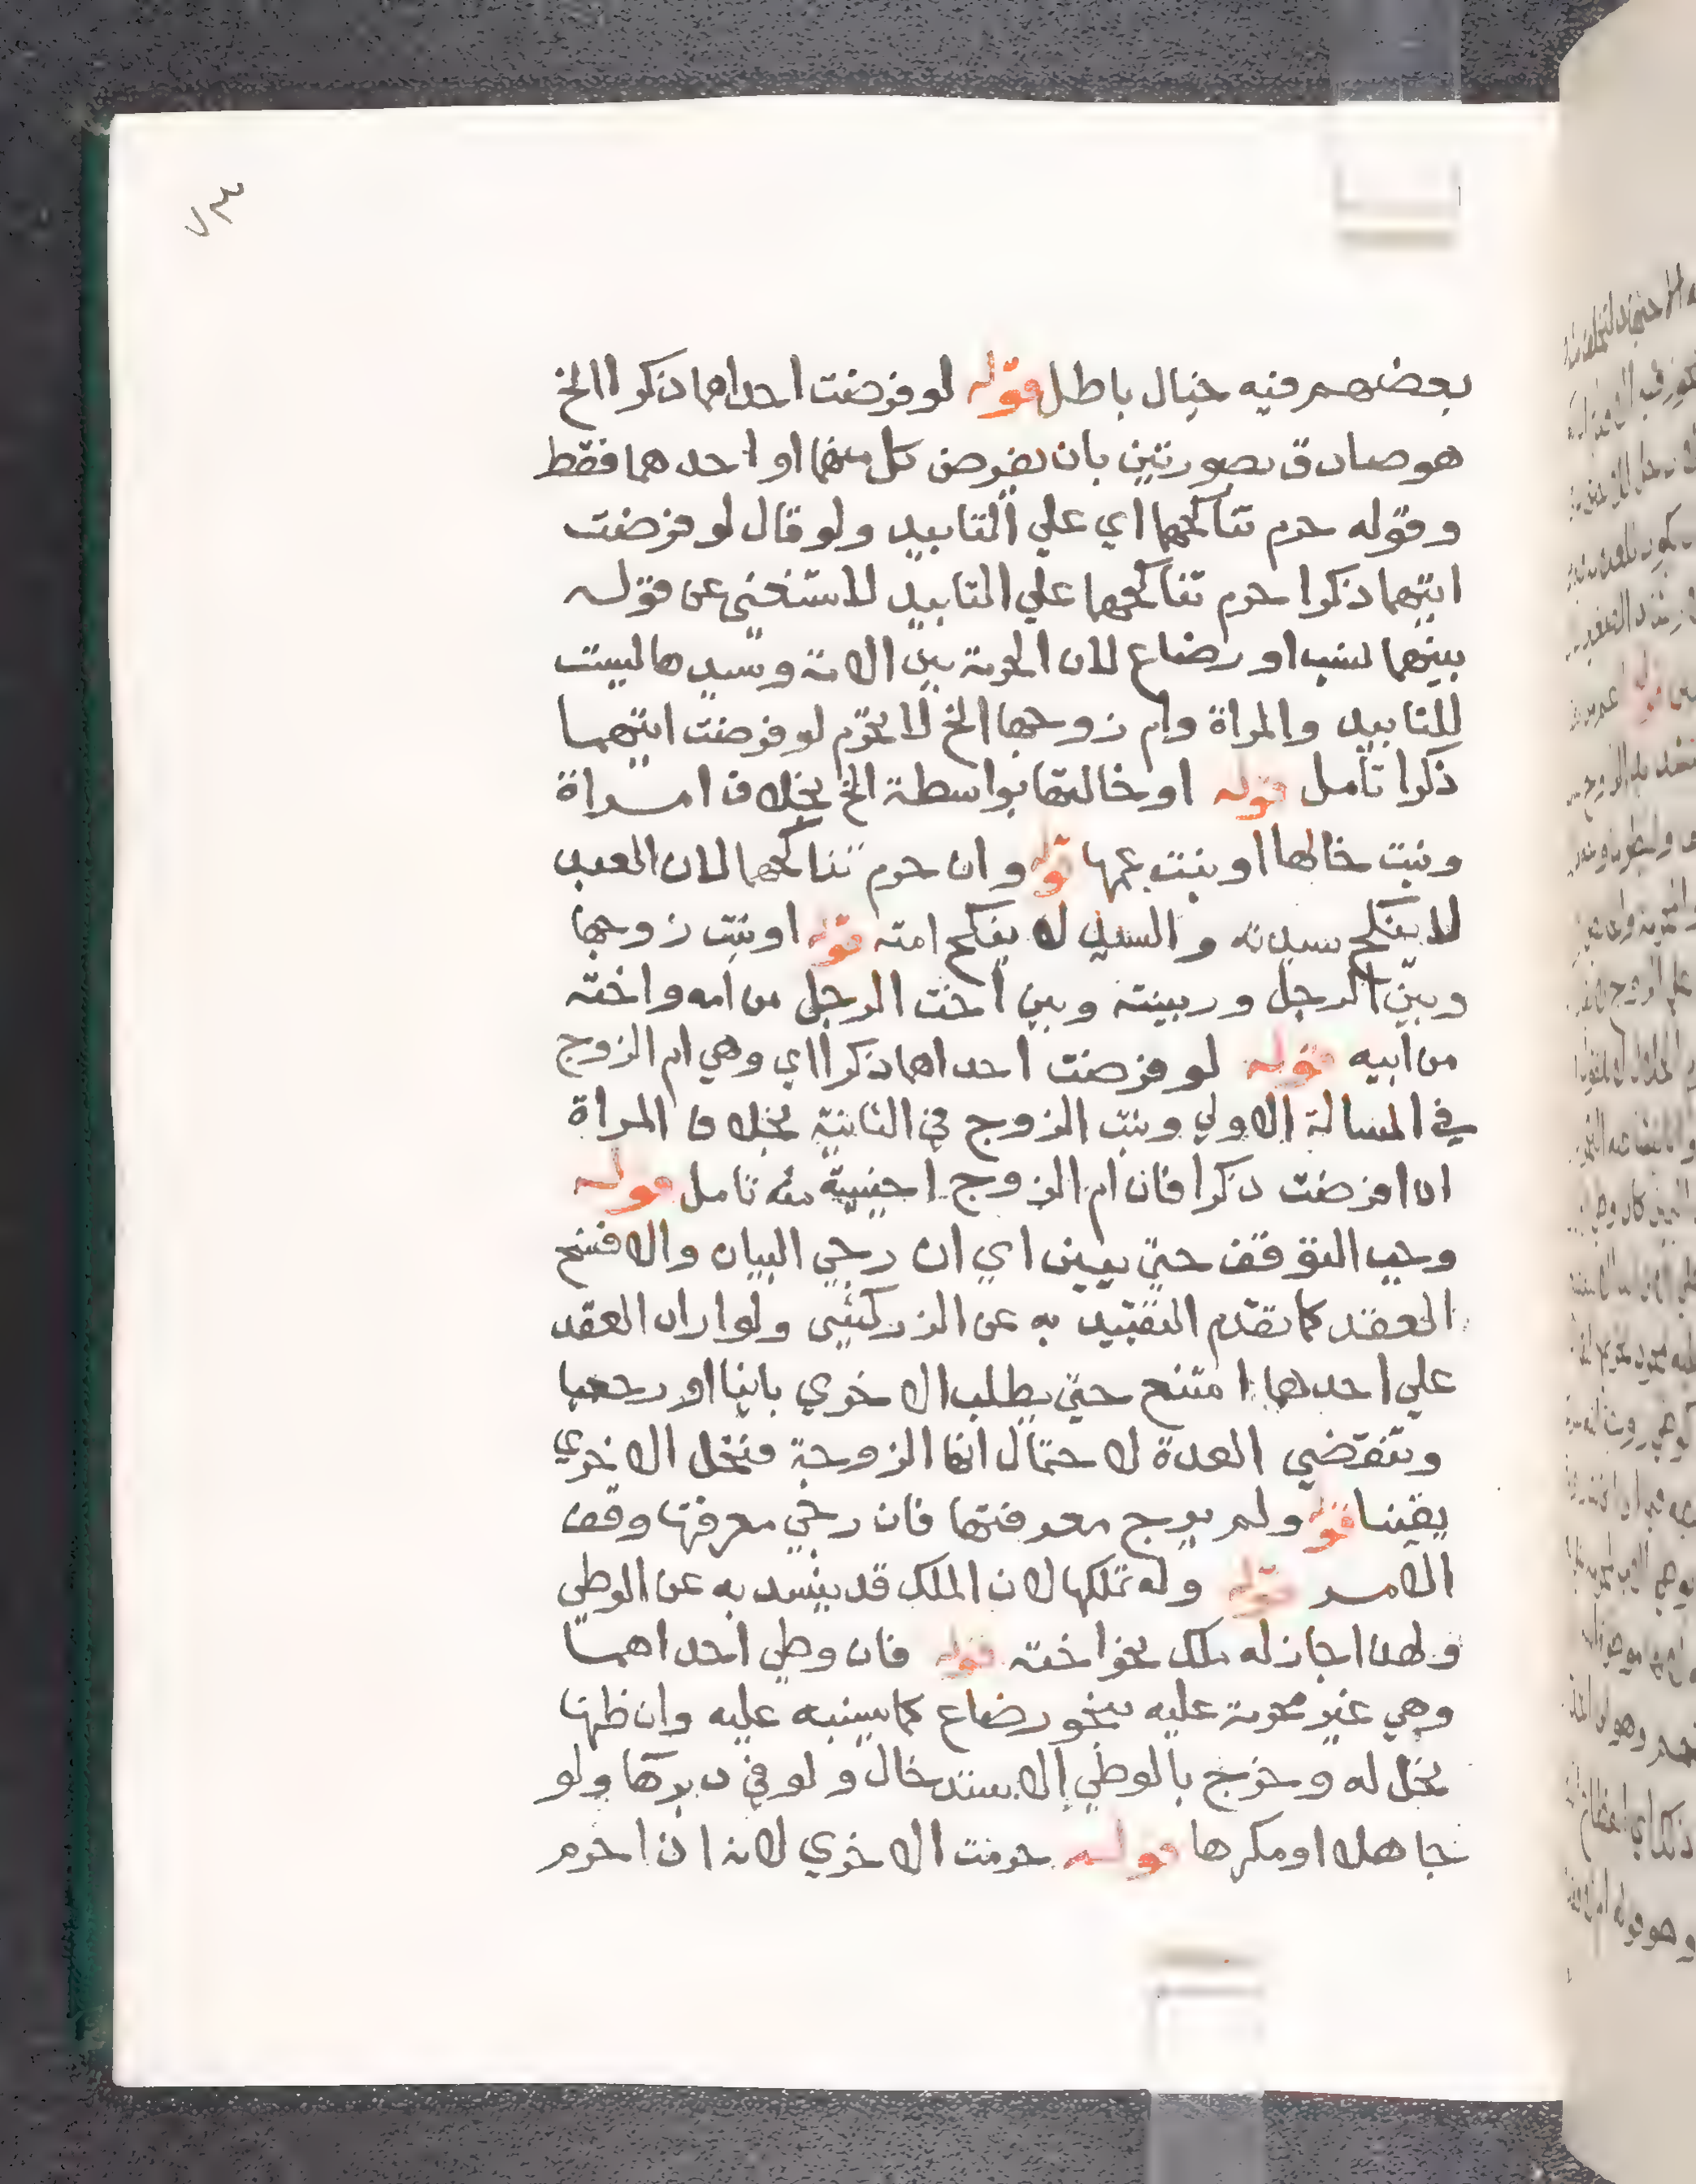 ٧٣
بعضهم فيه خيال باطل قوله لو فرضت احداهما ذكرا الخ
هو صادق بصورتين بان يفرض كل منهما او احدهما فقط
وقوله حرم تناكحهما اي علي التابيد ولو قال لو فرضت
ايتهما ذكرا حرم تناكحهما علي التابيد لاستغني عن قوله
بينهما نسب او رضاع لان الحرمة بين الامة وسيدها ليست
للتابيد والمراة وام زوجها الخ لا يحرم لو فرضت ايتهما
ذكرا تامل قوله او خالتها بواسطة الخ بخلاف امراة
وبنت خالها او بنت عمها قوله وان حرم تناكحهما لان العبد
لا ينكح سيدته والسيد لا ينكح امته قوله او بنت زوجها
وبين الرجل وربيبته وبين اخت الرجل من امه واخته
من ابيه قوله لو فرضت احداهما ذكرا اي وهي ام الزوج
في المسالة الاولي وبنت الزوج في الثانية بخلاف المراة
اذا فرضت ذكرا فان ام الزوج اجنبية منه تامل قوله
وجب التوقف حتي يبين اي ان رجي البيان والا فسخ
العقد كما تقدم التقييد به عن الزركشي ولو اراد العقد
علي احدها امتنع حتي يطلب الاخري باينا او رجعيا
وتنقضي العدة لاحتمال انها الزوجة فتحل الاخري
يقينا قوله ولم يرج معرفتها فان رجي معرفتها وقف
الامر قوله وله تملكها لان الملك قد يقصد به عن الوطي
ولهذا جاز له ملك نحو اخته قوله فان وطي احداهما
وهي غير محرمة عليه بنحو رضاع كما سينبه عليه وان ظنها
تحل له وخرج بالوطي الاستدخال ولو في دبرها ولو
جاهلا او مكرها قوله حرمت الاخري لانه اذا حرم